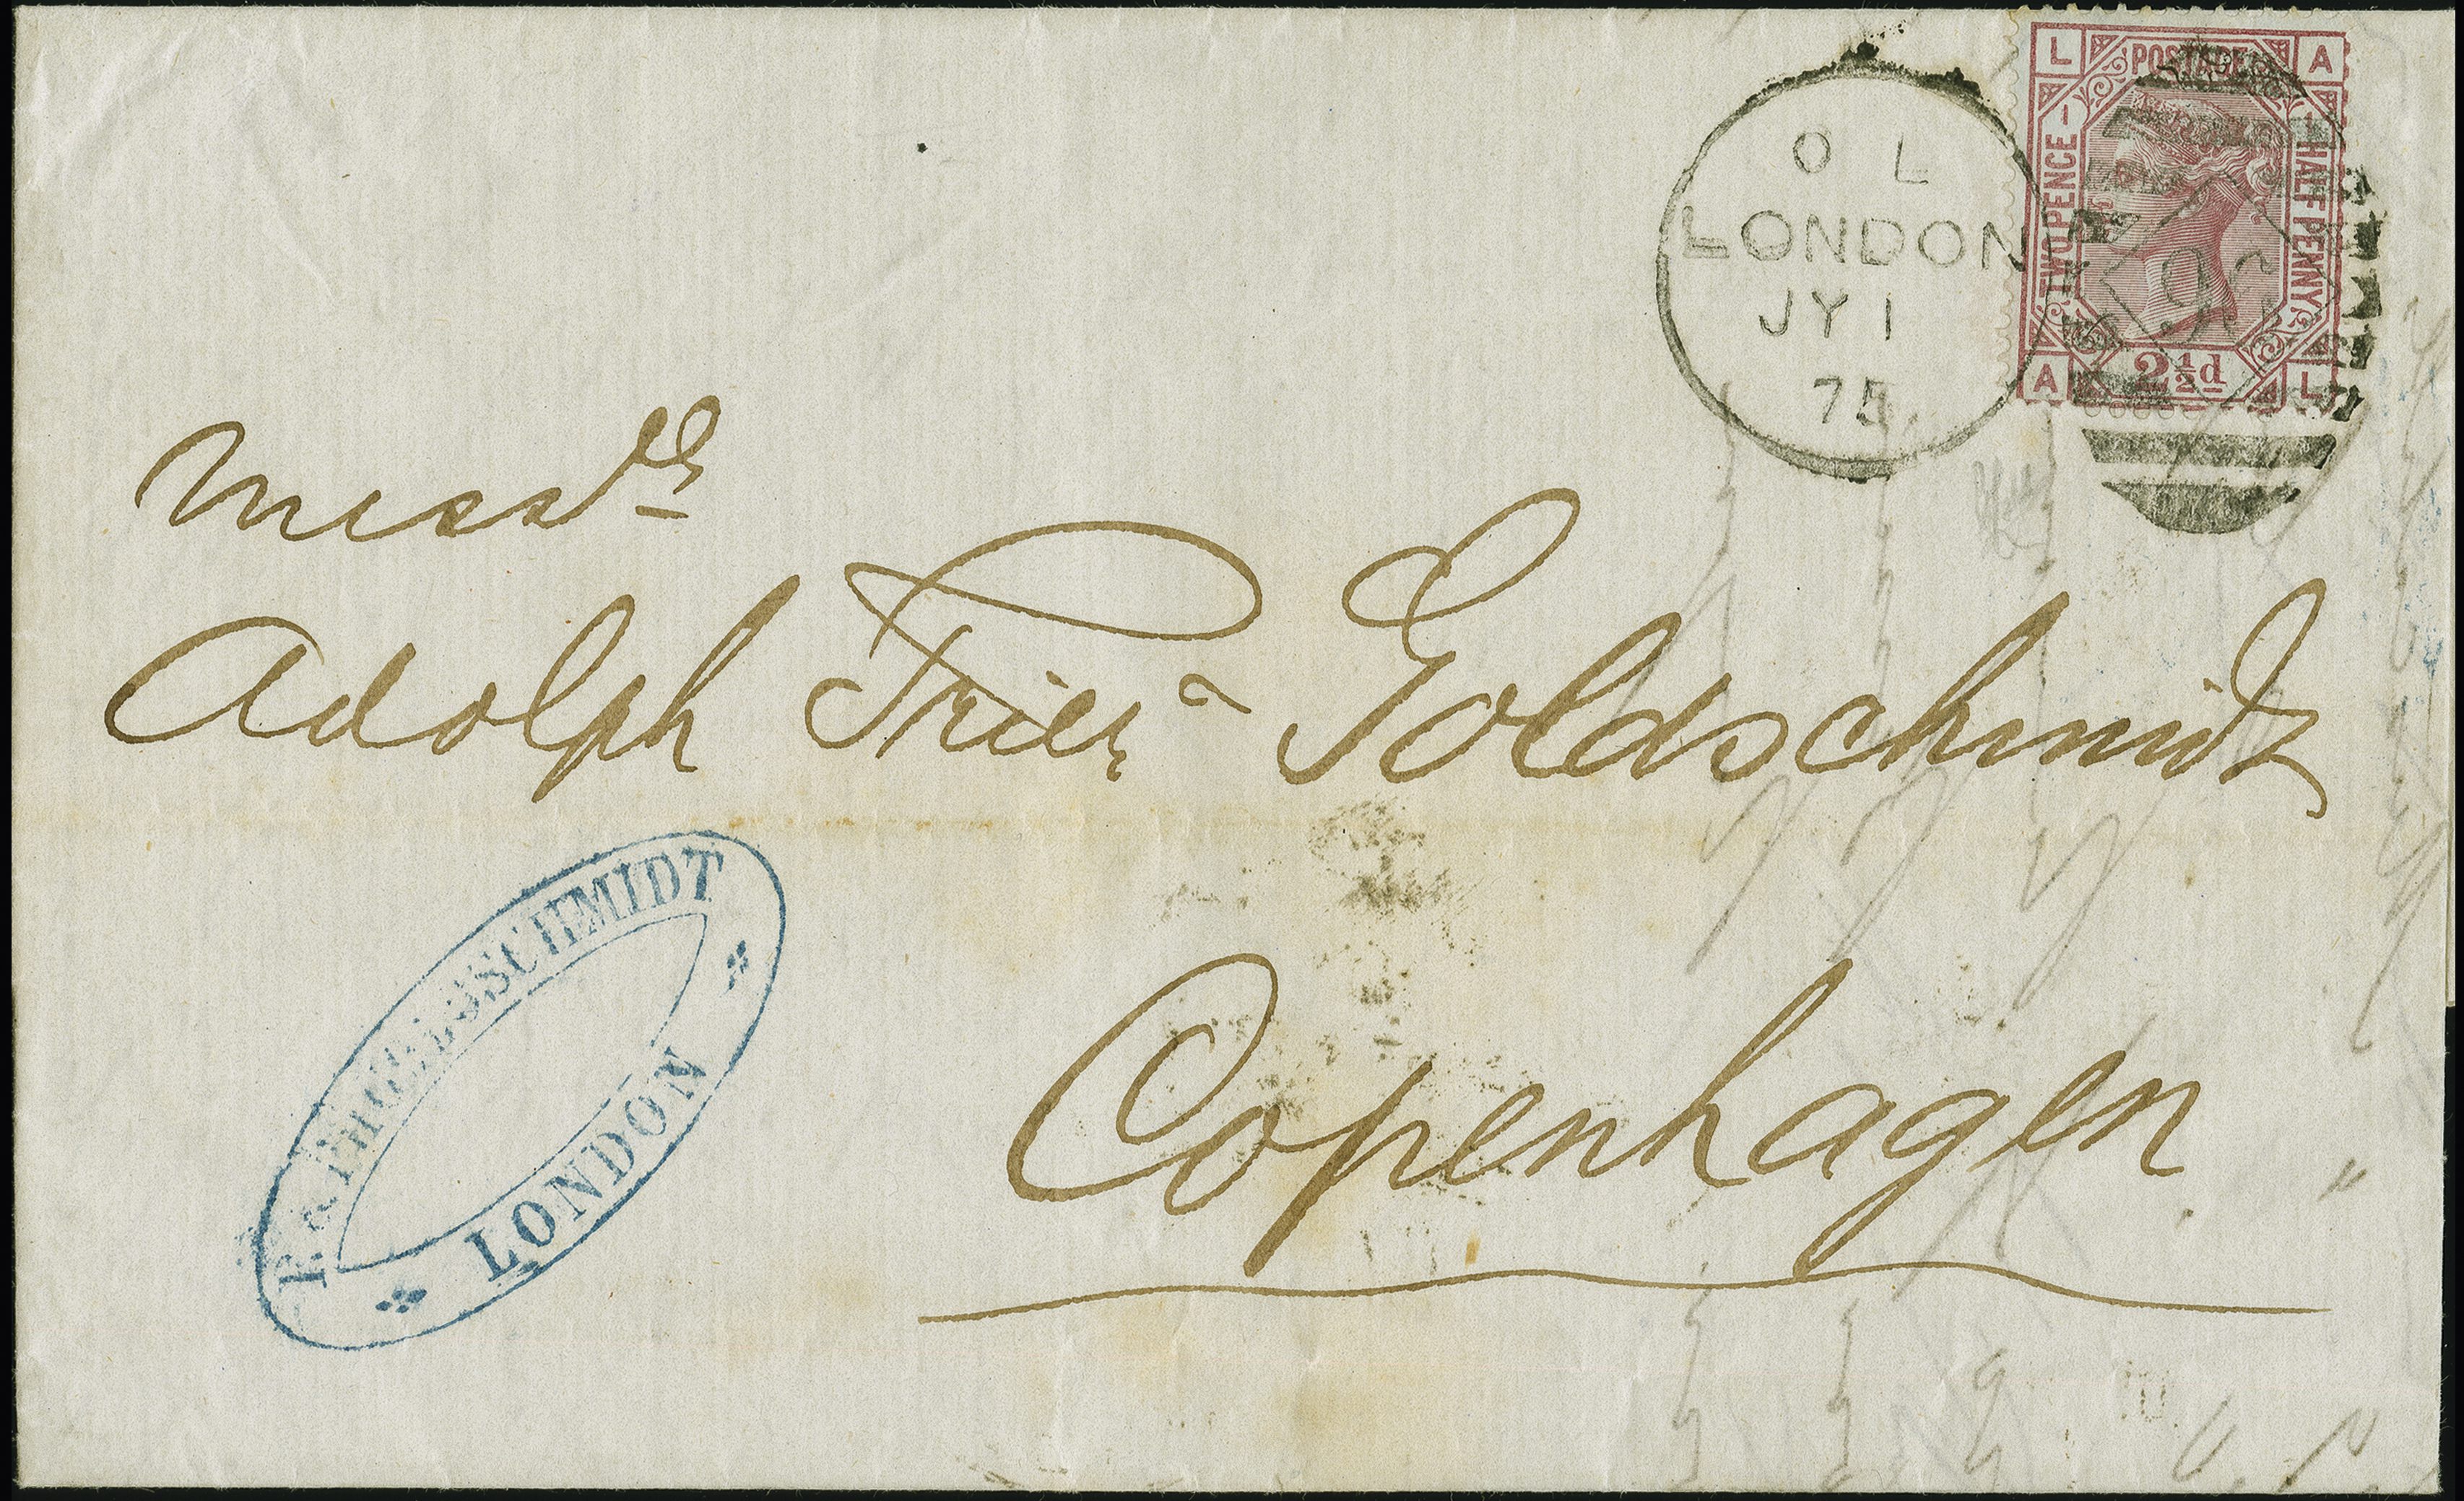 O L
LONDON
JY 1
75
L POSTAGE A
TWO PENCE 1
HALF PENNY 1
A 2½d L
Messrs
Adolph Trier & Goldschmidt
Copenhagen
GOLDSCHMIDT
LONDON